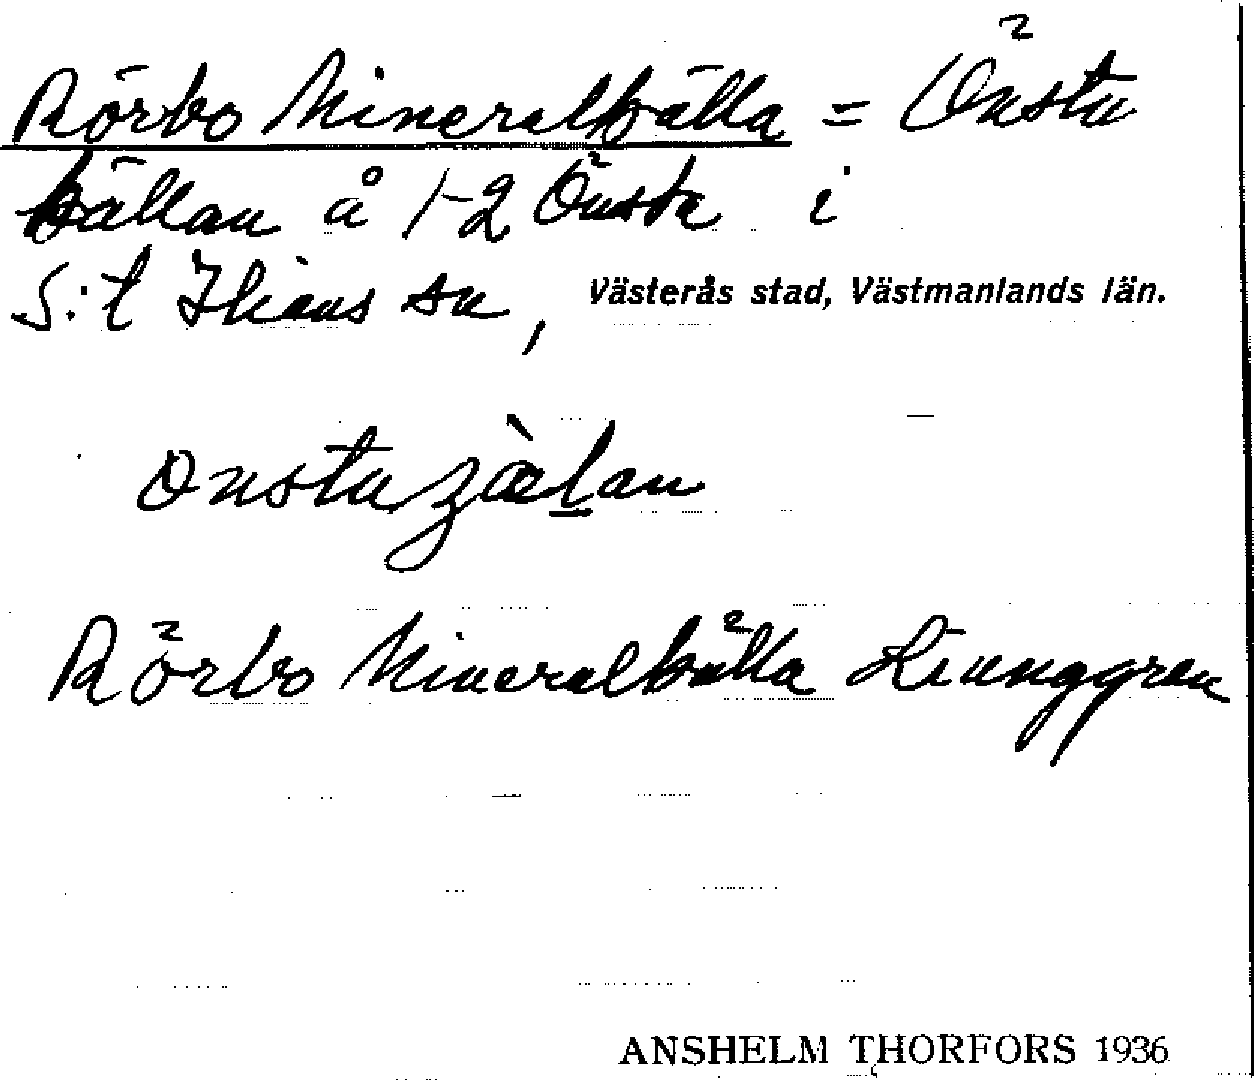 Rörbo Mineralkälla = Önsta
källan å 1-2 Önsta i
S:t Ilians sn, Västerås stad, Västmanlands län.
Onsta
Rörbo Mineralkälla
ANSHELM THORFORS 1936